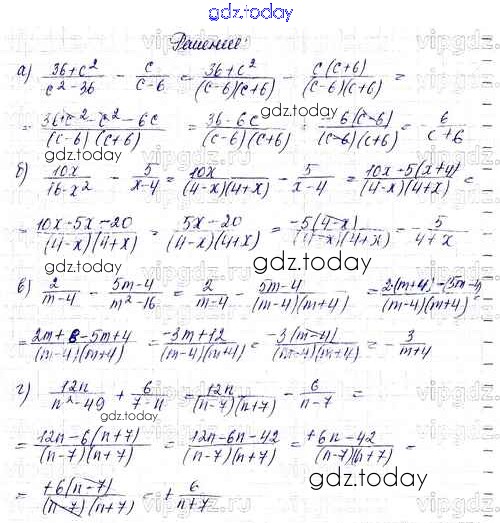 gdz.today
Решение:
а) (36+c²)/(c²-36) - c/(c-6) = (36+c²)/((c-6)(c+6)) - c(c+6)/((c-6)(c+6)) =
= (36+c²-c²-6c)/((c-6)(c+6)) = (36-6c)/((c-6)(c+6)) = -6(c-6)/((c-6)(c+6)) = -6/(c+6)
gdz.today
б) 10x/(16-x²) - 5/(x-4) = 10x/((4-x)(4+x)) - 5/(x-4) = (10x-5(x+4))/((4-x)(4+x)) =
= (10x-5x-20)/((4-x)(4+x)) = (5x-20)/((4-x)(4+x)) = -5(4-x)/((4-x)(4+x)) = -5/(4+x)
gdz.today
в) 2/(m-4) - (5m-4)/(m²-16) = 2/(m-4) - (5m-4)/((m-4)(m+4)) = (2(m+4)-(5m-4))/((m-4)(m+4)) =
= (2m+8-5m+4)/((m-4)(m+4)) = (-3m+12)/((m-4)(m+4)) = -3(m-4)/((m-4)(m+4)) = -3/(m+4)
г) 12n/(n²-49) + 6/(7-n) = 12n/((n-7)(n+7)) - 6/(n-7) =
gdz.today
= (12n-6(n+7))/((n-7)(n+7)) = (12n-6n-42)/((n-7)(n+7)) = (+6n-42)/((n-7)(n+7)) =
= +6(n-7)/((n-7)(n+7)) = + 6/(n+7)
gdz.today